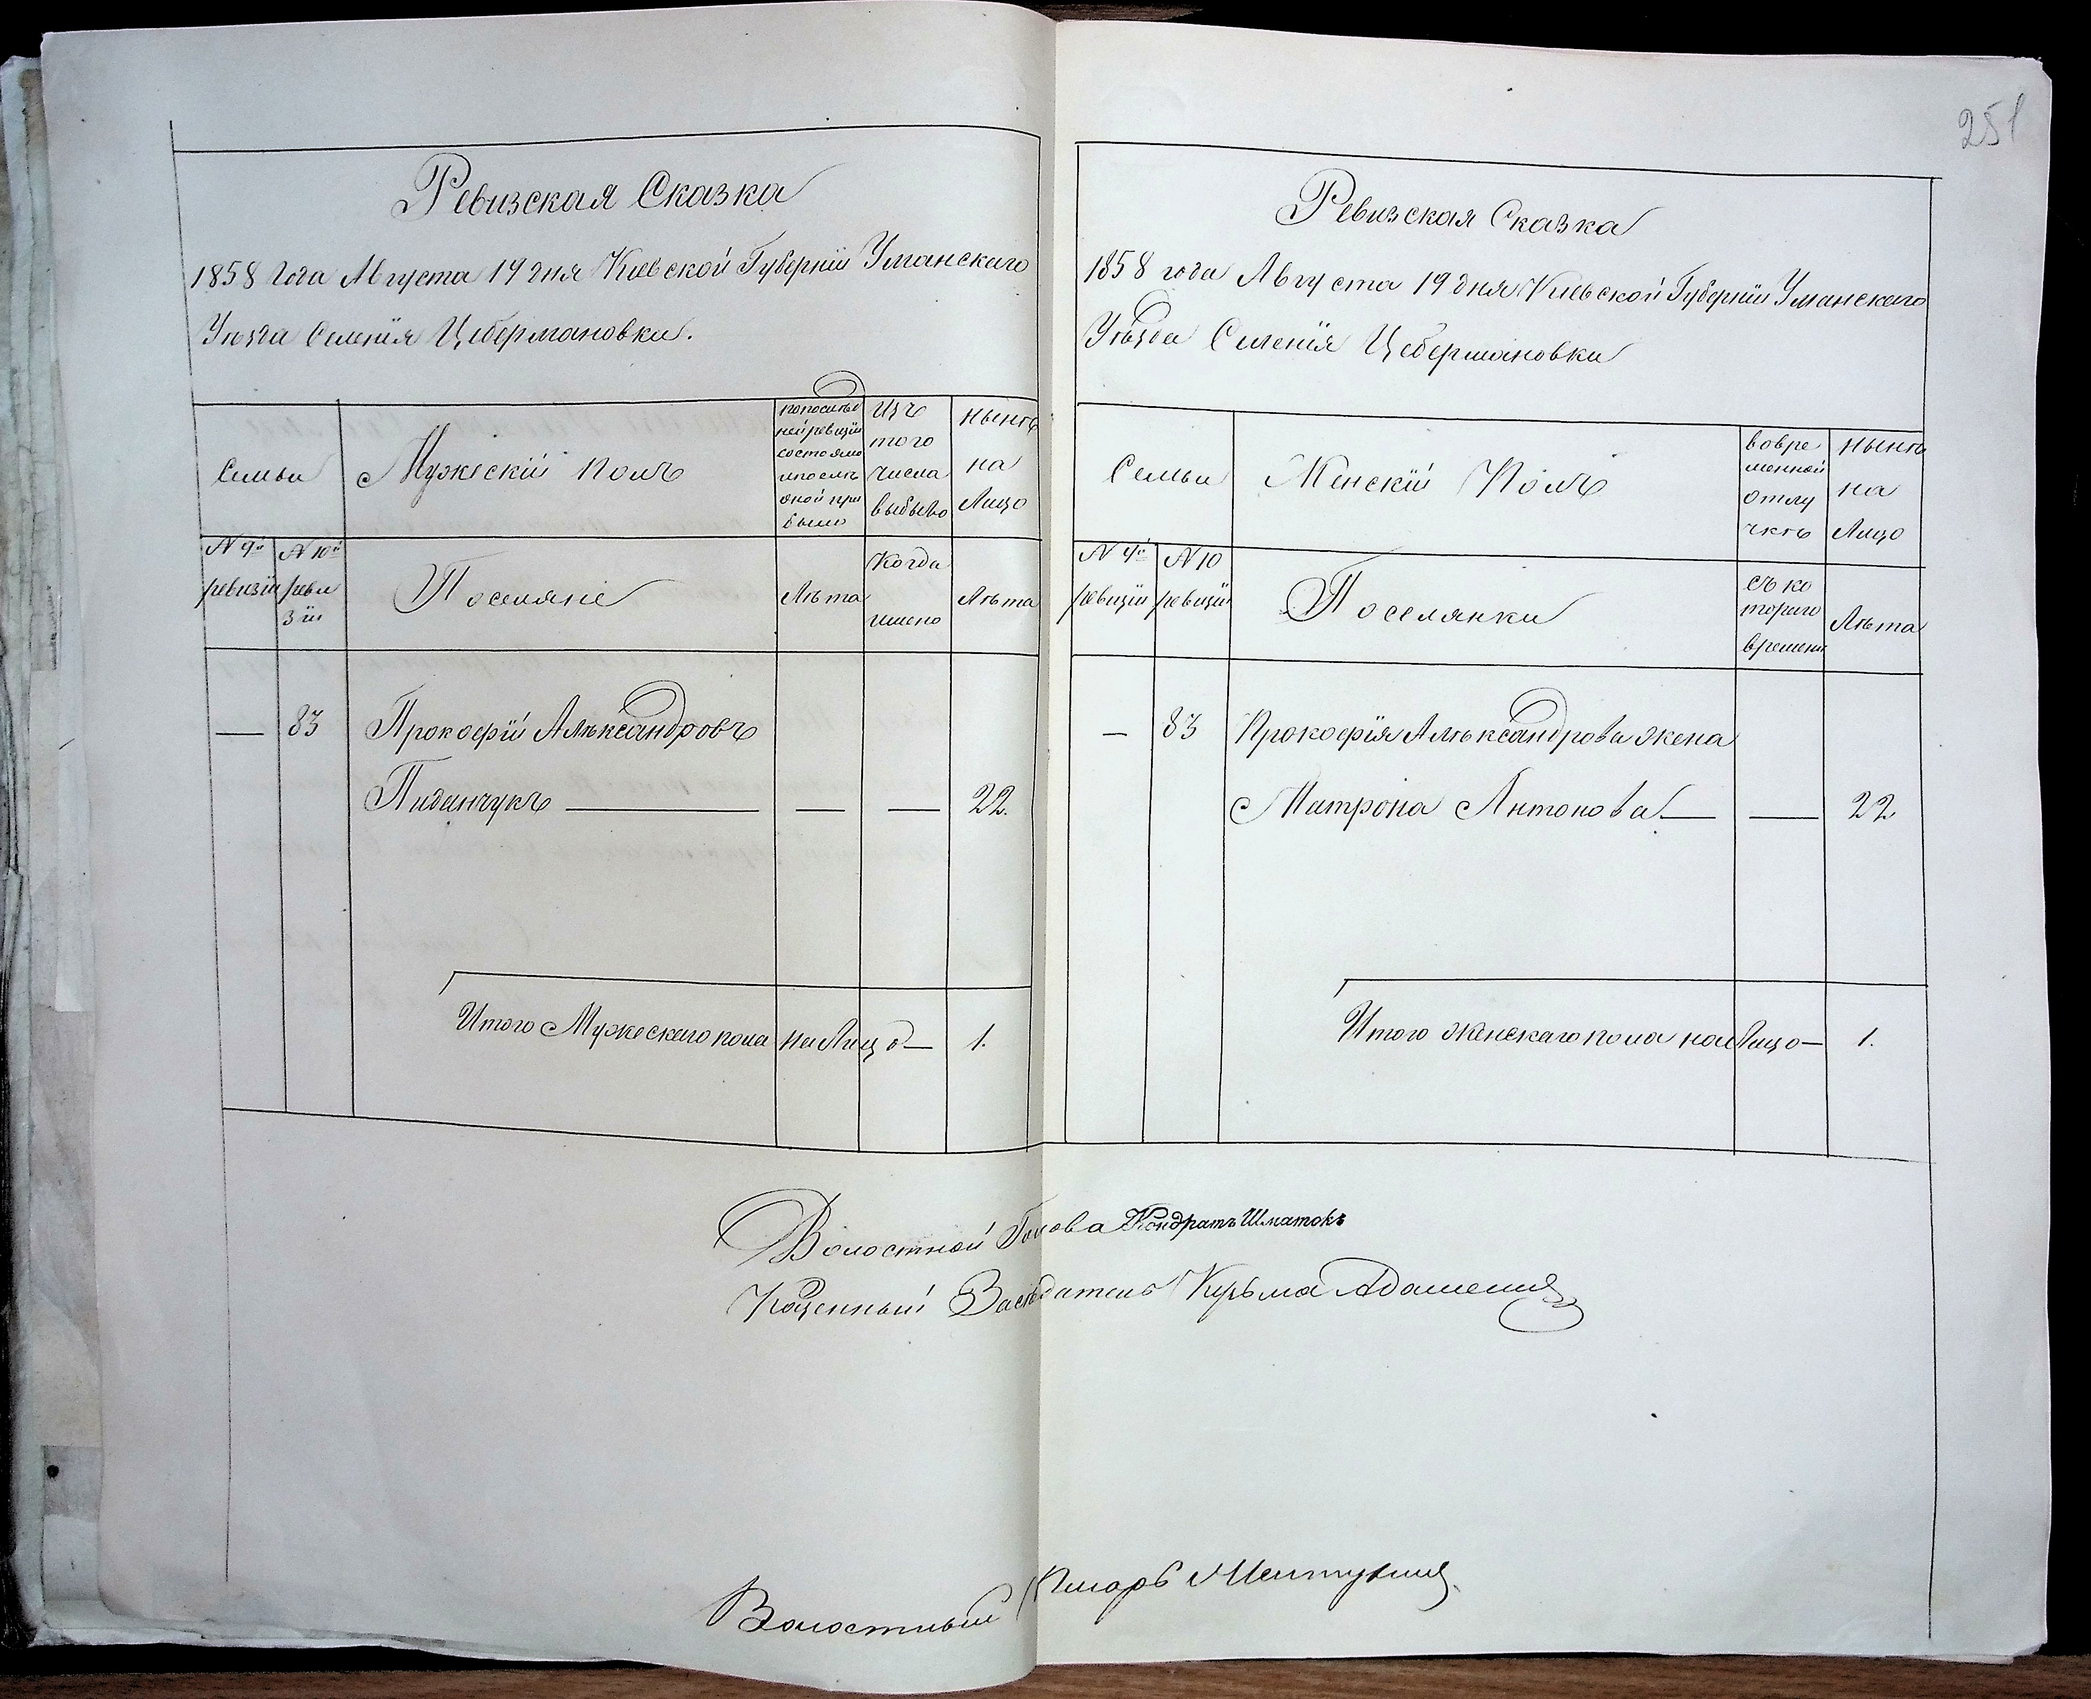 251
Ревизская Сказка
1858 Года Августа 19 дня Киевской Губерніи Уманскаго
Уѣзда Селенія Цебермановки.
Семьи
Мужескій полъ
по послѣд
ней ревизіи
состояло
и послѣ
оной при
было
Изъ
того
числа
выбыло
Нынѣ
на
Лицо
№ 9й
ревизіи
№ 10й
реви
зіи
Поселяне
Лѣта
Когда
имено
Лѣта
— 83 Прокофій Алѣксандровъ
Пиданчукъ — — — 22.
Итого Мужескаго пола на Лицо — 1.
Ревизская Сказка
1858 года Августа 19 дня Киевской Губерніи Уманскаго
Уѣзда Селенія Цебермановки
Семьи
Женскій Полъ
во вре
менной
отлу
чкѣ
Нынѣ
на
Лицо
№ 9й
ревизіи
№ 10
ревизіи
Поселянки
съ ко
тораго
времени
Лѣта
— 83 Прокофія Алѣксандрова жена
Матрона Антонова — — 22
Итого женскаго пола на Лицо — 1.
Волостной Голова Кондратъ Шматокъ
Казенный Засѣдатель Кузьма
Волостный Писарь